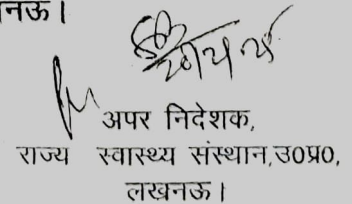 नऊ।
अपर निदेशक,
राज्य स्वास्थ्य संस्थान,उ0प्र0,
लखनऊ।